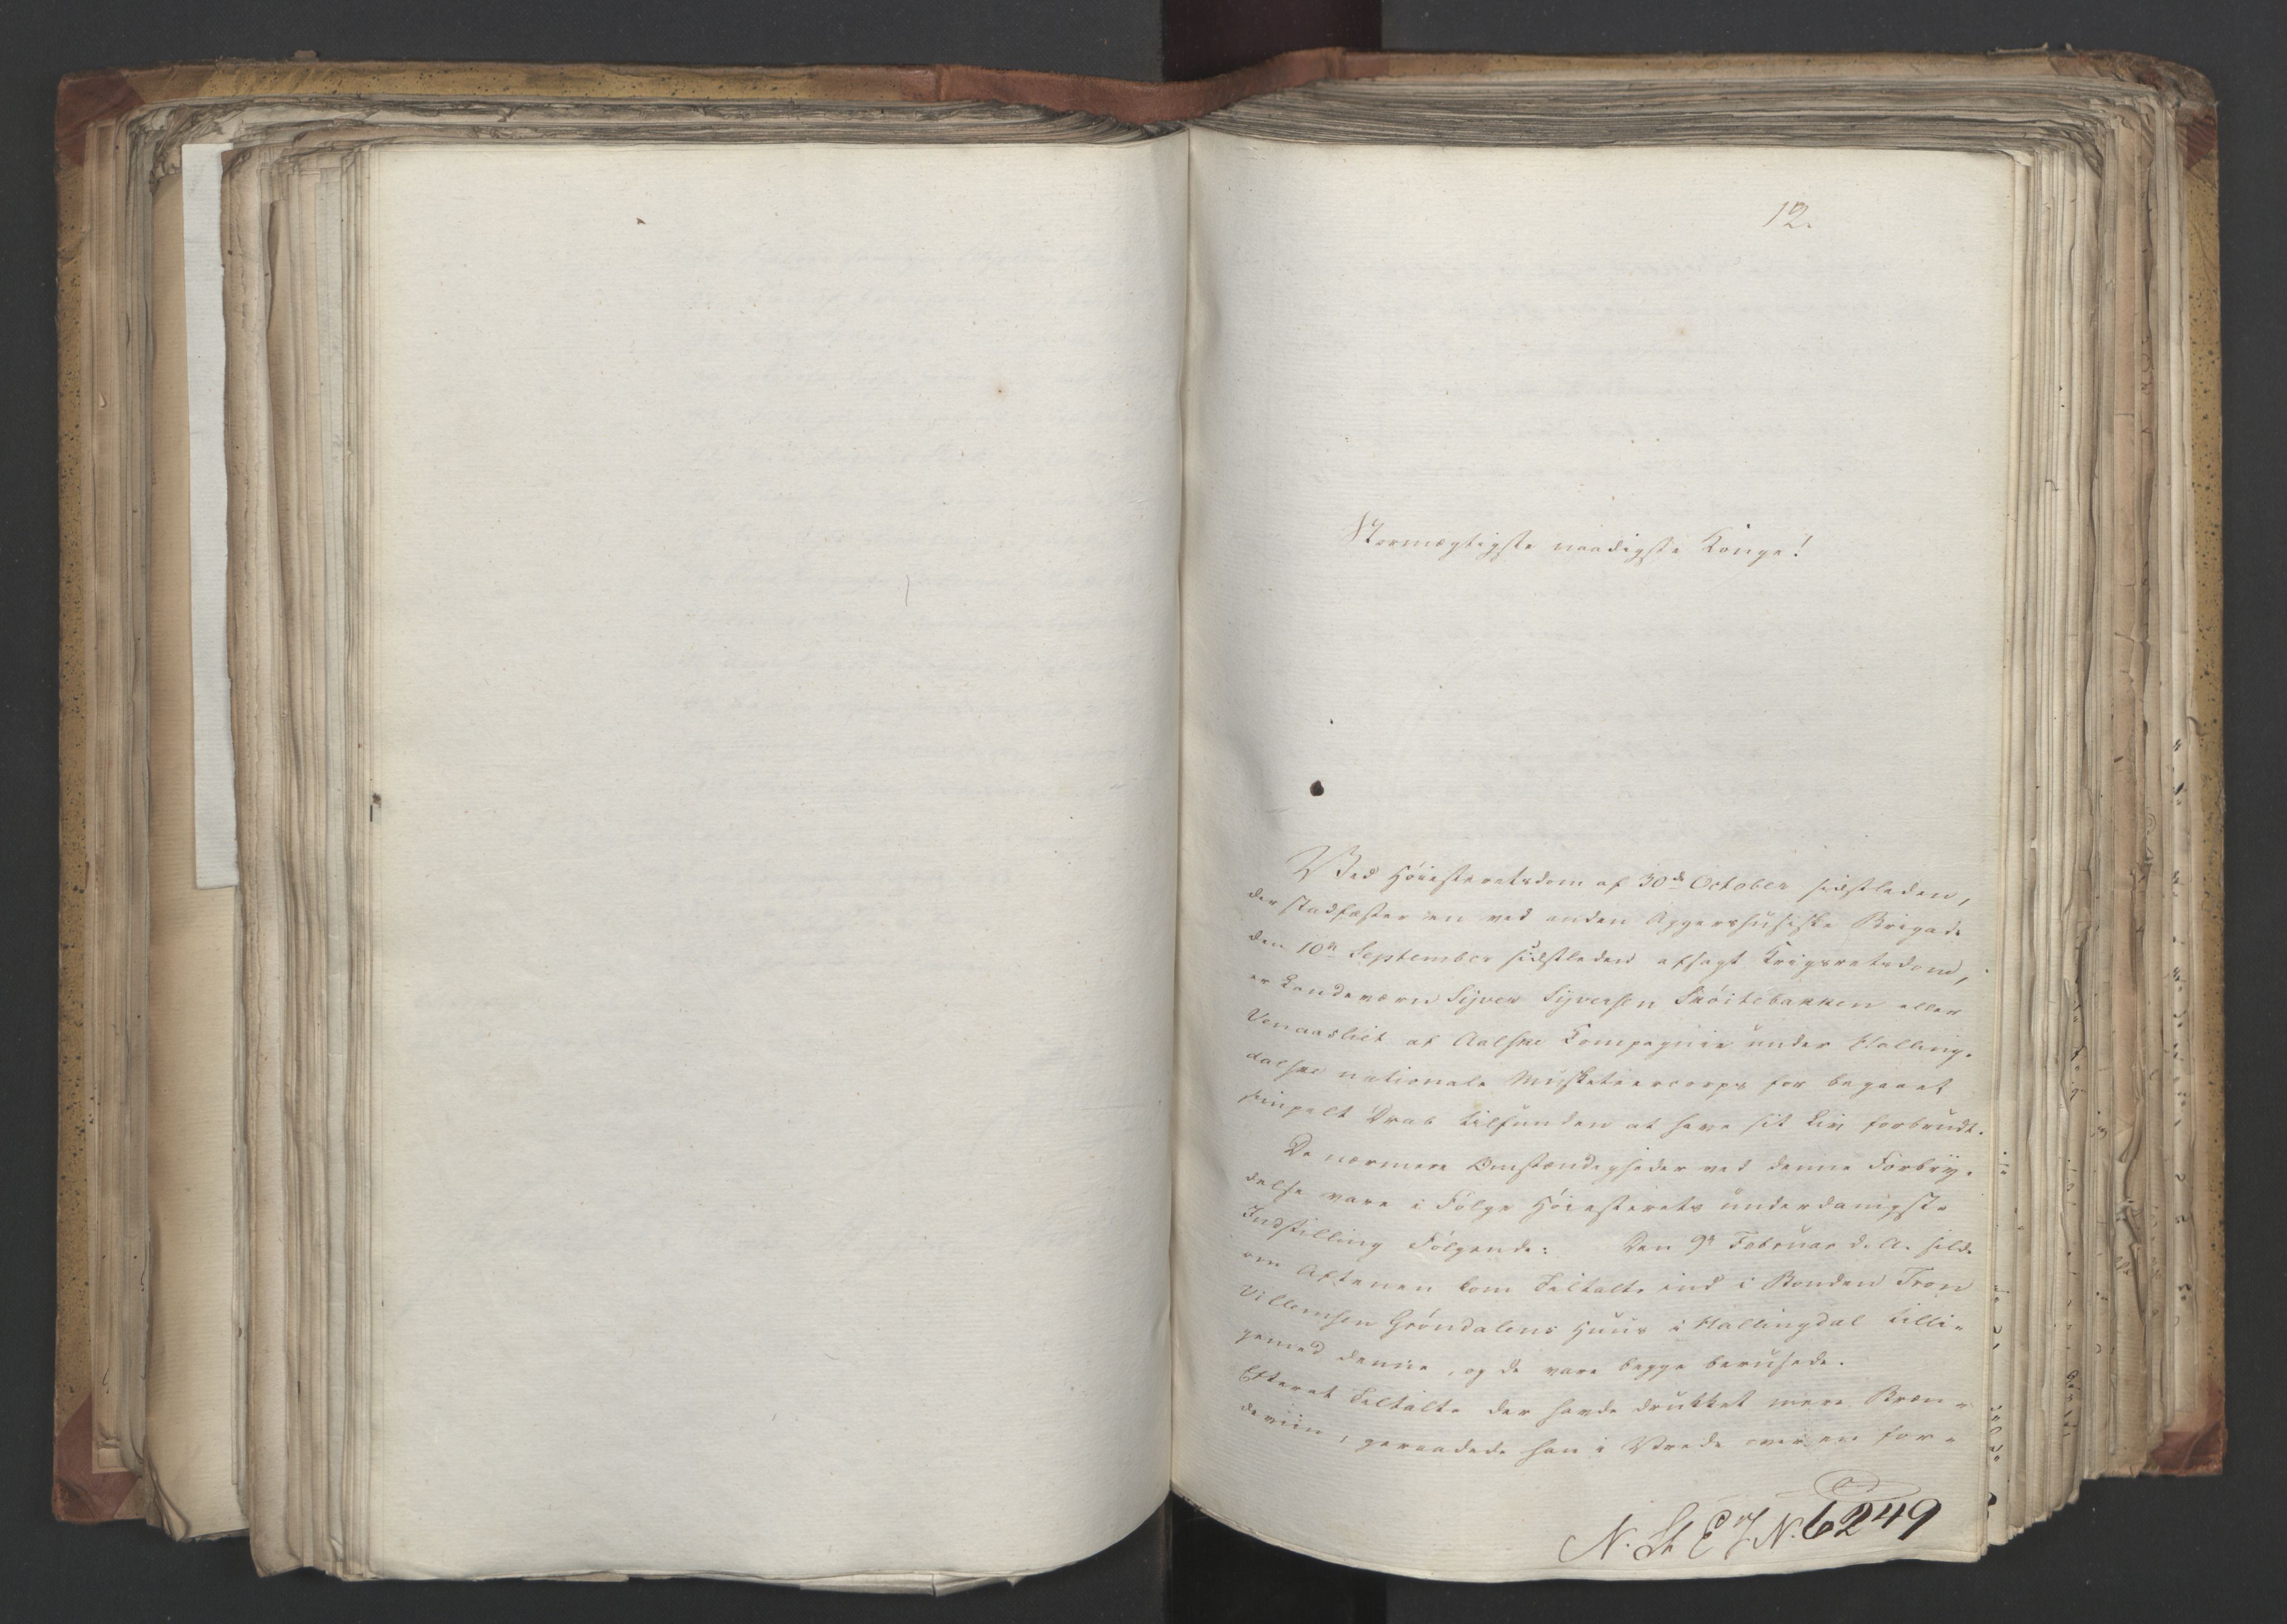 12.
Stormægtigste naadigste Konge!
Ved Høiesteretsdom af 30de October sidstleden,
der stadfæster en ved anden Aggershusiske Brigade
den 10de September sidstleden afsagt Krigsretsdom,
er Landeværn Syver Syversen Skøitebakken eller
af Aalske Kompagnie under Halling-
dalske nationale Musketeercorps for begaaet
simpelt Drab tilfunden at have sit Liv forbrudt.
De nærmere Omstændigheder ved denne Forbry-
delse vare i Følge Høiesterets underdanigste
Indstilling Følgende: Den 9de Februar d. A. silde
om Aftenen kom Tiltalte ind i Bonden Tron
Villemsen Grøndalens Huus i Hallingdal tilli-
gemed denne, og de vare begge berusede.
Efterat Tiltalte der havde drukket mere Bræn-
deviin, geraadede han i Vrede over en for-
N. St E J. N. 6249